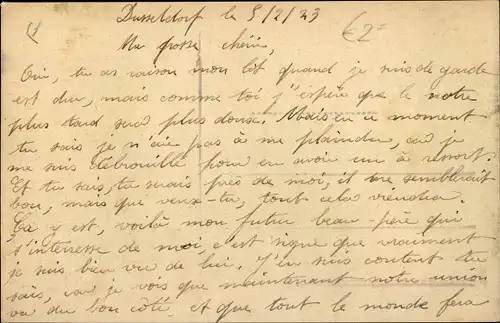 Dusseldorf le 5/2/23
€2=
Ma gosse chérie,
Oui, tu as raison mon lit quand je suis de garde
est dur, mais comme toi j'espère que le notre
plus tard sera plus doux. Mais en ce moment
tu sais je n'ai pas à me plaindre, car je
me suis débrouillé pour en avoir un à ressort.
Et tu sais, tu serais près de moi, il me semblerait
bon, mais que veux-tu, tout cela viendra.
Ça y est, voilà mon futur beau-père qui
s'interresse de moi, c'est signe que vraiment
je suis bien vu de lui. J'en suis content tu
sais, car je vois que maintenant notre union
va du bon côté, et que tout le monde fera